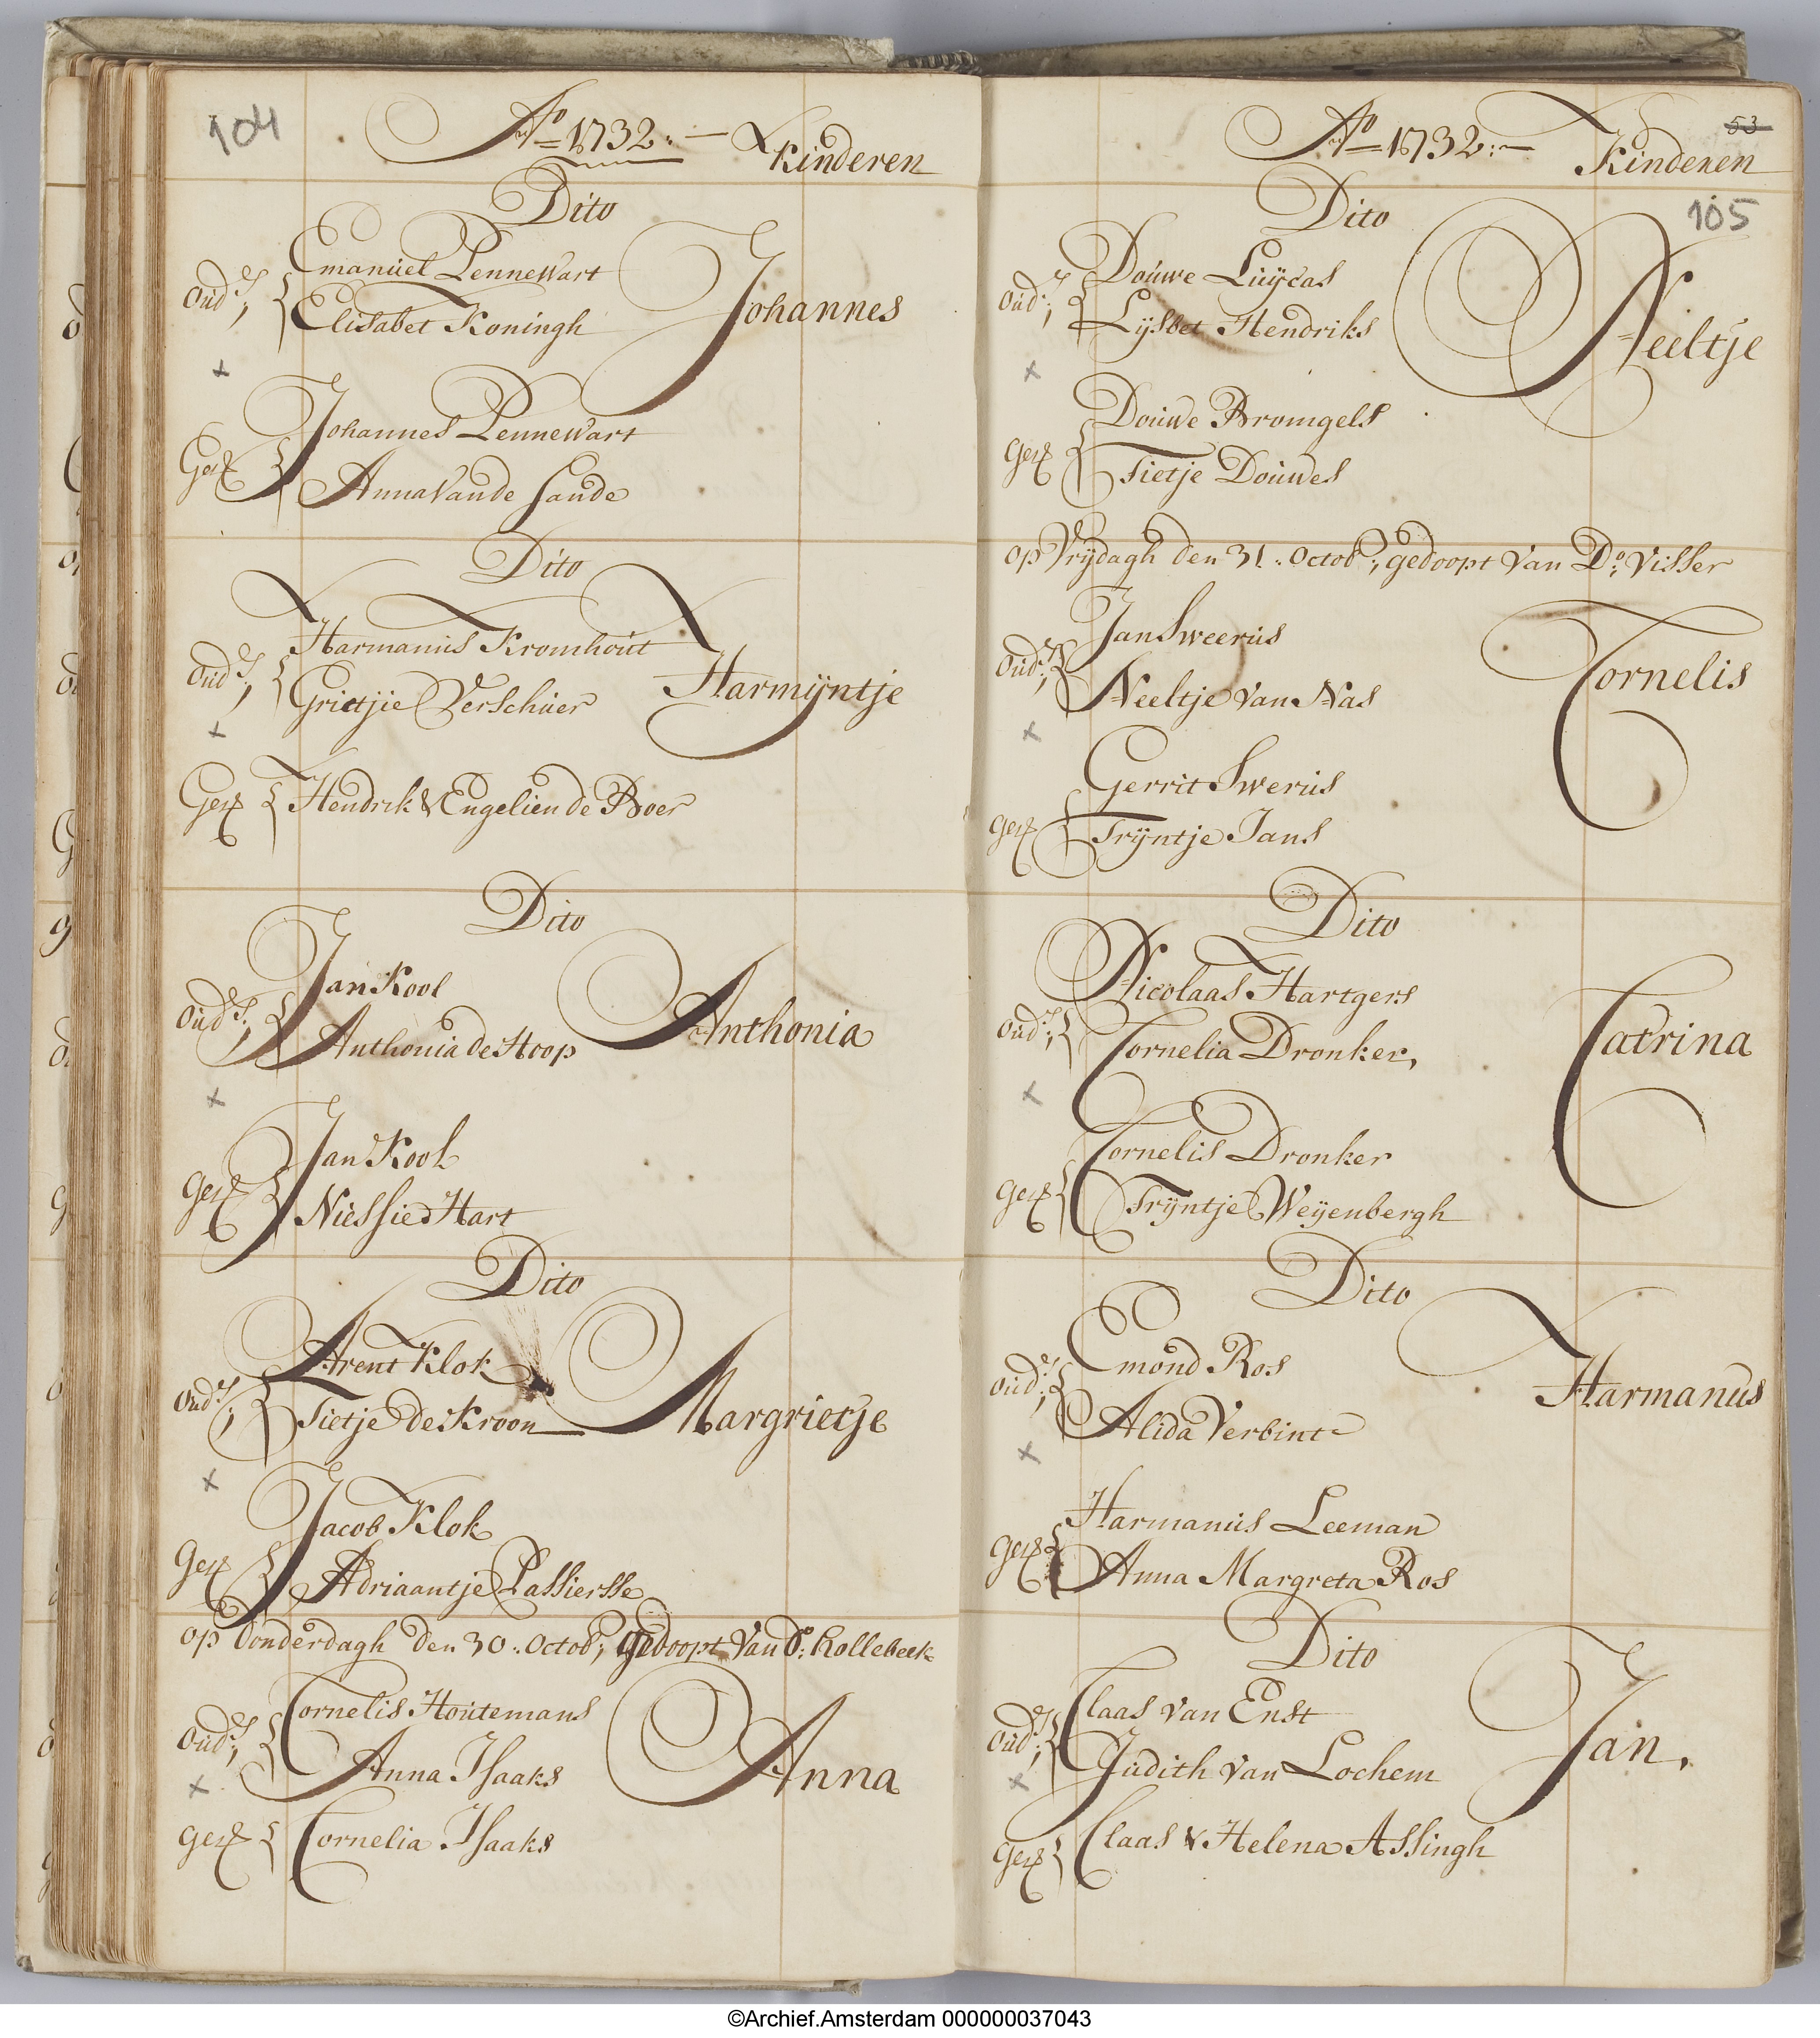 104
Ao 1732:— Kinderen
Dito
Oud.s; { Emanuel Pennewart
Elisabet Koningh
Johannes
x
Get { Johannes Pennewart
Anna Vande Sande
Dito
Oud.s; { Harmanus Kromhout
Grietjie Verschuer
Harmijntje
x
Get { Hendrik & Engelien de Boer
Dito
Oud.s; { Jan Kool
Anthonia de Hoop
Anthonia
x
Get { Jan Kool
Niessie Hart
Dito
Oud.s; { Arent Klok
Tietje de Kroon
Margrietje
x
Get { Jacob Klok
Adriaantje Passiersse
op Donderdagh den 30. Octob; gedoopt Van Do: Kollebeek
Oud.s; { Cornelis Houtemans
Anna Isaaks
Anna
x
get { Cornelia Isaaks
53
Ao 1732:— Kinderen
105
Dito
Oud.s; { Douwe Luycas
Lysbet Hendriks
Neeltje
x
get { Douwe Bromgels
Tietje Douwes
op Vrijdagh den 31. Octob; gedoopt Van Do; Visser
Oud.s; { Jan Sweerus
Neeltje van Nas
Cornelis
x
get { Gerrit Swerus
Trijntje Jans
Dito
Oud.s; { Nicolaas Hartgers
Cornelia Dronker,
Catrina
x
get { Cornelis Dronker
Trijntje Weyenbergh
Dito
Oud.s; { Emond Ros
Alida Verbint
Harmanus
x
get { Harmanus Leeman
Anna Margreta Ros
Dito
Oud.s; { Claas van Enst
Judith van Lochem
Jan,
x
get { Claas & Helena Assingh
©Archief.Amsterdam 000000037043